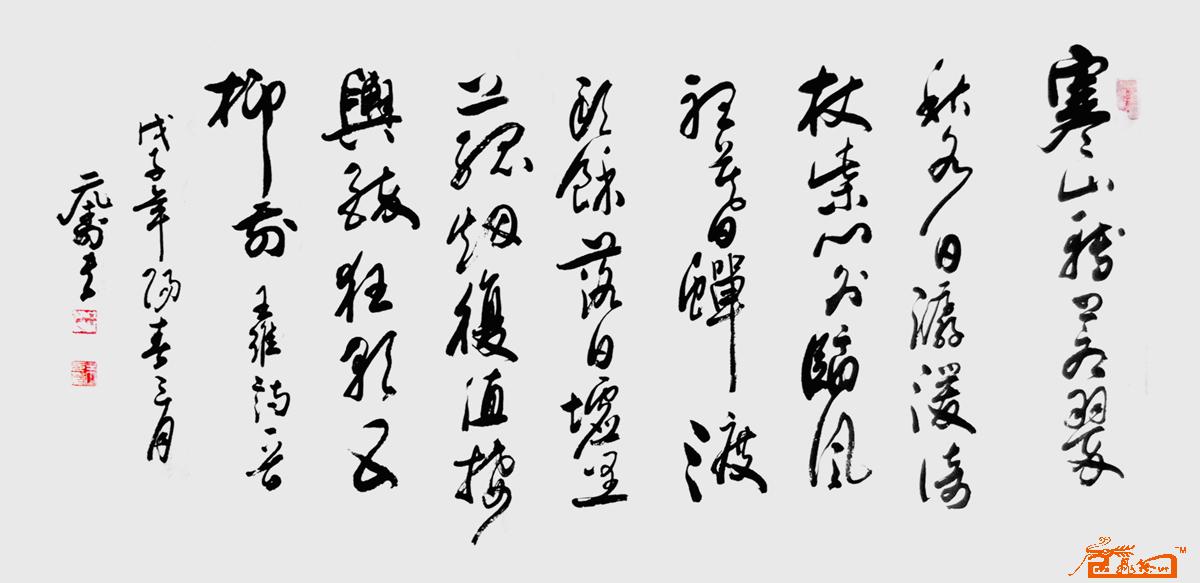 寒山轉蒼翠
秋水日潺湲倚
杖柴門外臨風
聽暮蟬渡
頭餘落日墟里
上孤烟復值接
輿醉狂歌五
柳前 王維詩一首
戊子年陽春三月
書